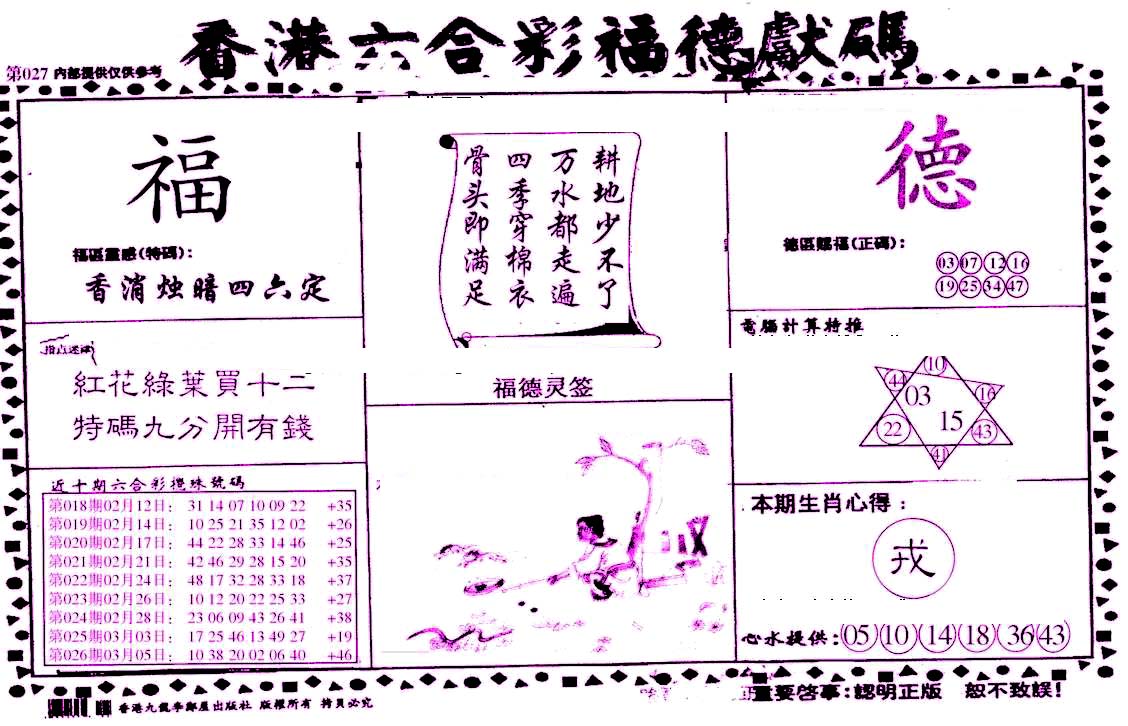 香港六合彩福德獻碼
第027 内部提供仅供参考
福
福區靈感(特碼):
香消烛暗四六定
耕地少不了
万水都走遍
四季穿棉衣
骨头即满足
德
德區賜福(正碼):
03 07 12 16
19 25 34 47
指点迷津
紅花綠葉買十二
特碼九分開有錢
福德灵签
電腦計算特推
10
44 16
03
15
22 43
41
近十期六合彩攪珠號碼
第018期02月12日: 31 14 07 10 09 22 +35
第019期02月14日: 10 25 21 35 12 02 +26
第020期02月17日: 44 22 28 33 14 46 +25
第021期02月21日: 42 46 29 28 15 20 +35
第022期02月24日: 48 17 32 28 33 18 +37
第023期02月26日: 10 12 20 22 25 33 +27
第024期02月28日: 23 06 09 43 26 41 +38
第025期03月03日: 17 25 46 13 49 27 +19
第026期03月05日: 10 38 20 02 06 40 +46
本期生肖心得:
戎
心水提供: 05 10 14 18 36 43
重要啓事:認明正版 恕不致誤!
香港九龍季鄰屋出版社 版權所有 拷貝必究